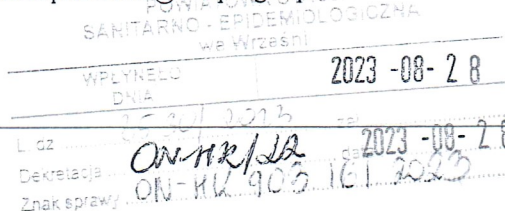 SANITARNO - EPIDEMIOLOGICZNA
we Wrześni
WPŁYNĘŁO
DNIA
2023 -08- 28
L. dz
zał
2023 -08- 28
Dekretacja ON-HK/
Znak sprawy ON-HK 903 161 2023